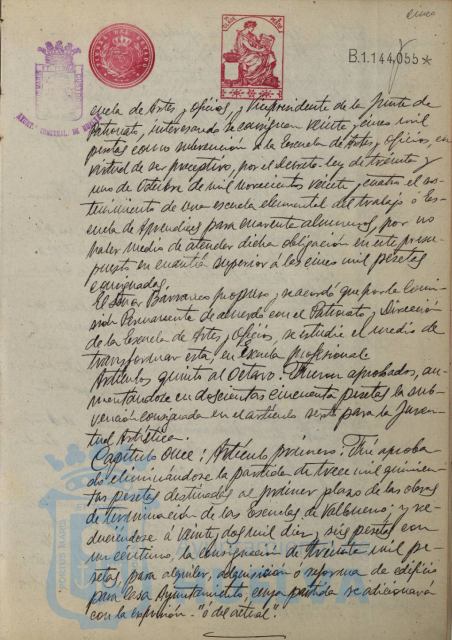 cinco
B.1.144.055*
cuela de Artes y Oficios, y Vicepresidente de la Junta de
Patronato, interesando se consignen veinte y cinco mil
pesetas como subvención a la Escuela de Artes y Oficios, en
virtud de ser preceptivo, por el decreto-ley de treinta y
uno de Octubre de mil novecientos veinte y cuatro el sos-
tenimiento de una escuela elemental del trabajo ó Es-
cuela de Aprendices para cuarenta alumnos, por no
haber medio de atender dicha obligación en este presu-
puesto en cuantía superior á las cinco mil pesetas
consignadas.
El Señor Barranco propuso, y se acordó que por la Comi-
sión Permanente de acuerdo con el Patronato y Dirección
de la Escuela de Artes y Oficios, se estudie el medio de
transformar esta en Escuela profesional.
Artículos quinto al octavo: Fueron aprobados, au-
mentandose en doscientas cincuenta pesetas la sub-
vención consignada en el artículo sexto para la Juven-
tud Artística.
Capítulo Once: Artículo primero: Fué aproba-
do eliminándose la partida de trece mil quinien-
tas pesetas destinadas al primer plazo de las obras
de terminación de las Escuelas de Valbueno; y re-
duciéndose á veinte y dos mil diez y seis pesetas con
un centimo, la consignación de treinta mil pe-
setas, para alquiler, adquisición ó reforma de edificio
para Casa Ayuntamiento, cuya partida se adicionara
con la expresión - "ó del actual".